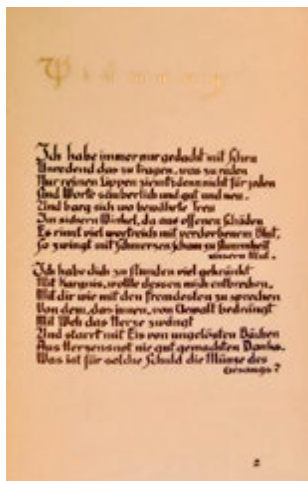 Widmung
Ich habe immer nur gedacht mit Scheu
Unredend das zu sagen, was zu reden
Nur reinen Lippen ziemt; denn nicht für jeden
Sind Worte säuberlich und gut und neu.
Und barg sich wo bewährte Treu
Im sichern Winkel, da aus offenen Schäden
Es rinnt viel wortreich mit verdorbenem Blut,
So zwingt mit Schmerzen Scham zu Stummheit
unsern Mut.
Ich habe dich zu stunden viel gekränkt
Mit Kargnis, wollte dessen mich entbrechen,
Mit dir wie mit den fremdesten zu sprechen
Von dem, das innen, von Gewalt bedrängt
Mit Weh das Herze zwängt
Und starrt mit Eis von ungelösten Bächen
Aus Herzensnot nie gut gemachten Danks.
Was ist für solche Schuld die Münze des
Gesangs?